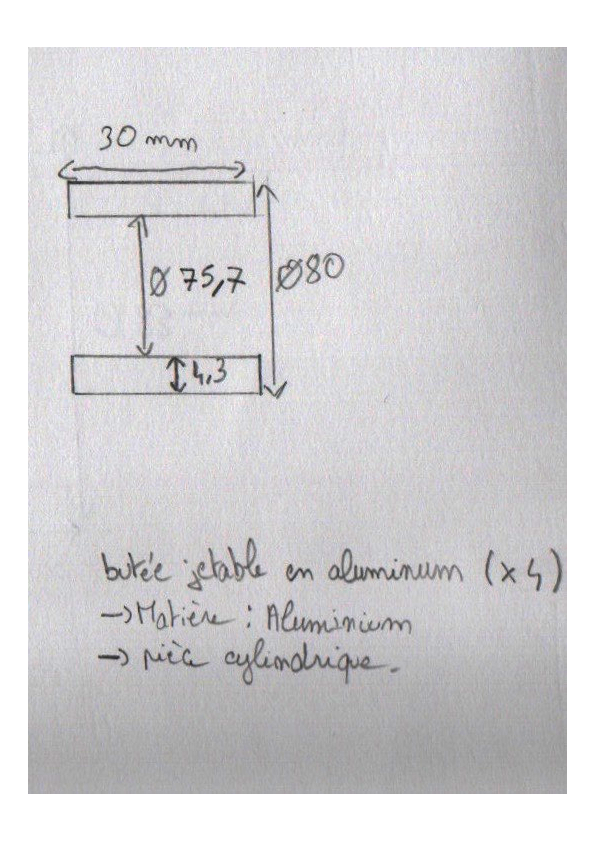 30 mm
Ø 75,7
Ø80
4,3
butée jetable en aluminum (x4)
→ Matière : Aluminium
→ pièce cylindrique.